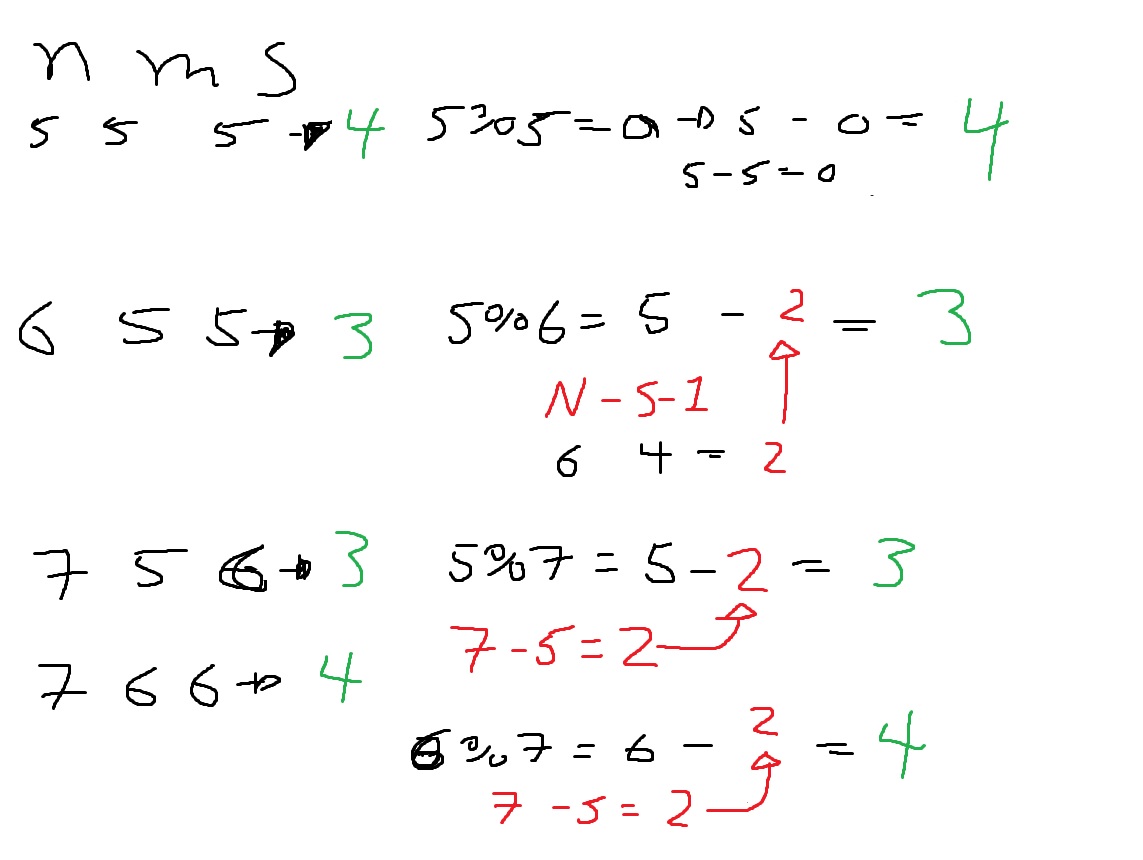 n m S
5 5 5 → 4 5%5 = 0 → 5 - 0 = 4
5 - 5 = 0
6 5 5 → 3 5%6 = 5 - 2 = 3
N - S - 1
6 4 = 2
7 5 6 → 3 5%7 = 5 - 2 = 3
7 - 5 = 2
7 6 6 → 4
6%7 = 6 - 2 = 4
7 - 5 = 2